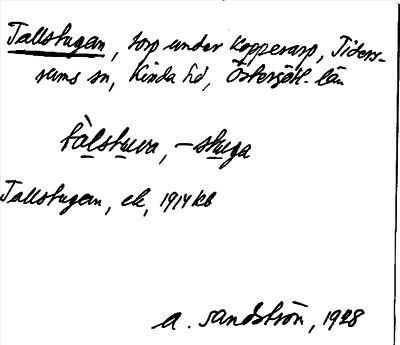 Tallstugan, torp under Kopperarp, Tiders-
rums sn, Kinda hd, Östergötl. län
tàlstuva, -stuga
Tallstugan, ek, 1914 kb
A. Sandström, 1928